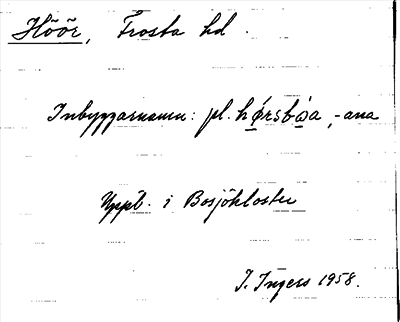 Höör, Frosta hd.
Inbyggarnamn: pl. hǿrsbøa, -ana
Uppl. i Bosjökloster
I. Ingers 1958.